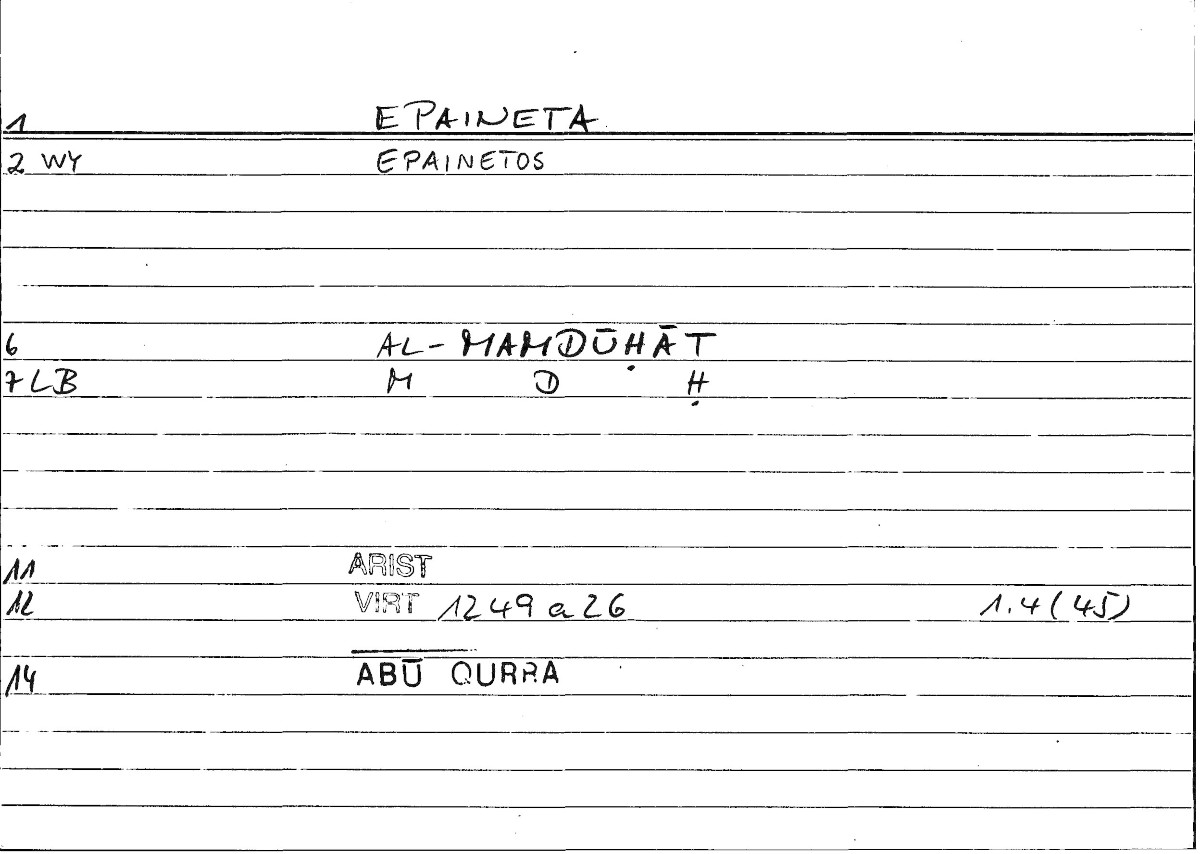 1 EPAINETA
2 WY EPAINETOS
6 AL-MAMDŪḤĀT
7 LB M D Ḥ
11 ARIST
12 VIRT 1249 a 26 1.4 (45)
14 ABŪ QURRA